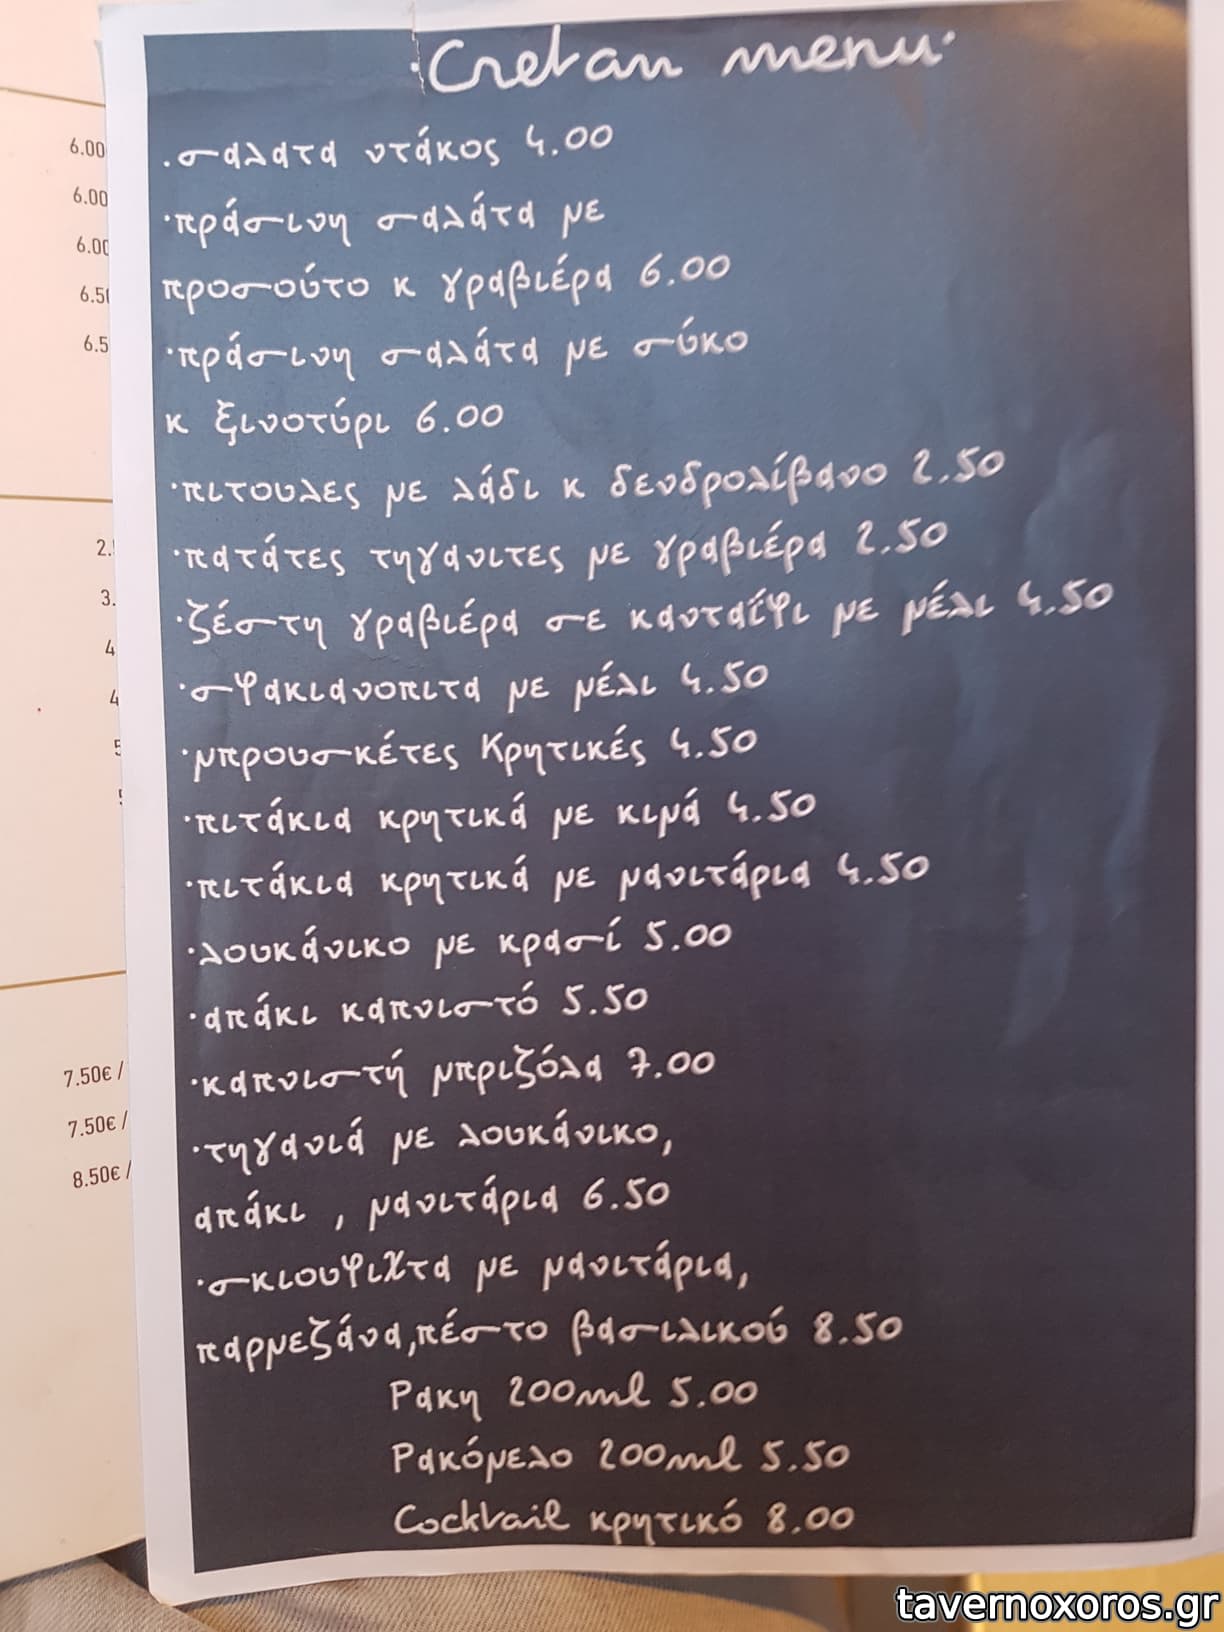 ·Cretan menu·
·σαλατα ντάκος 4.00
·πράσινη σαλάτα με
προσούτο κ γραβιέρα 6.00
·πράσινη σαλάτα με σύκο
κ ξινοτύρι 6.00
·πιτουλες με λάδι κ δενδρολίβανο 2.50
·πατάτες τηγανιτες με γραβιέρα 2.50
·ζέστη γραβιέρα σε κανταΐφι με μέλι 4.50
·σφακιανοπιτα με μέλι 4.50
·μπρουσκέτες Κρητικές 4.50
·πιτάκια κρητικά με κιμά 4.50
·πιτάκια κρητικά με μανιτάρια 4.50
·λουκάνικο με κρασί 5.00
·απάκι καπνιστό 5.50
·καπνιστή μπριζόλα 7.00
·τηγανιά με λουκάνικο,
απάκι , μανιτάρια 6.50
·σκιουφιχτα με μανιτάρια,
παρμεζάνα,πέστο βασιλικού 8.50
Ρακη 200ml 5.00
Ρακόμελο 200ml 5.50
Cocktail κρητικό 8.00
6.00
6.00
6.00
6.50
6.5
2.
3.
4
4
5
5
7.50€ /
7.50€ /
8.50€ /
tavernoxoros.gr